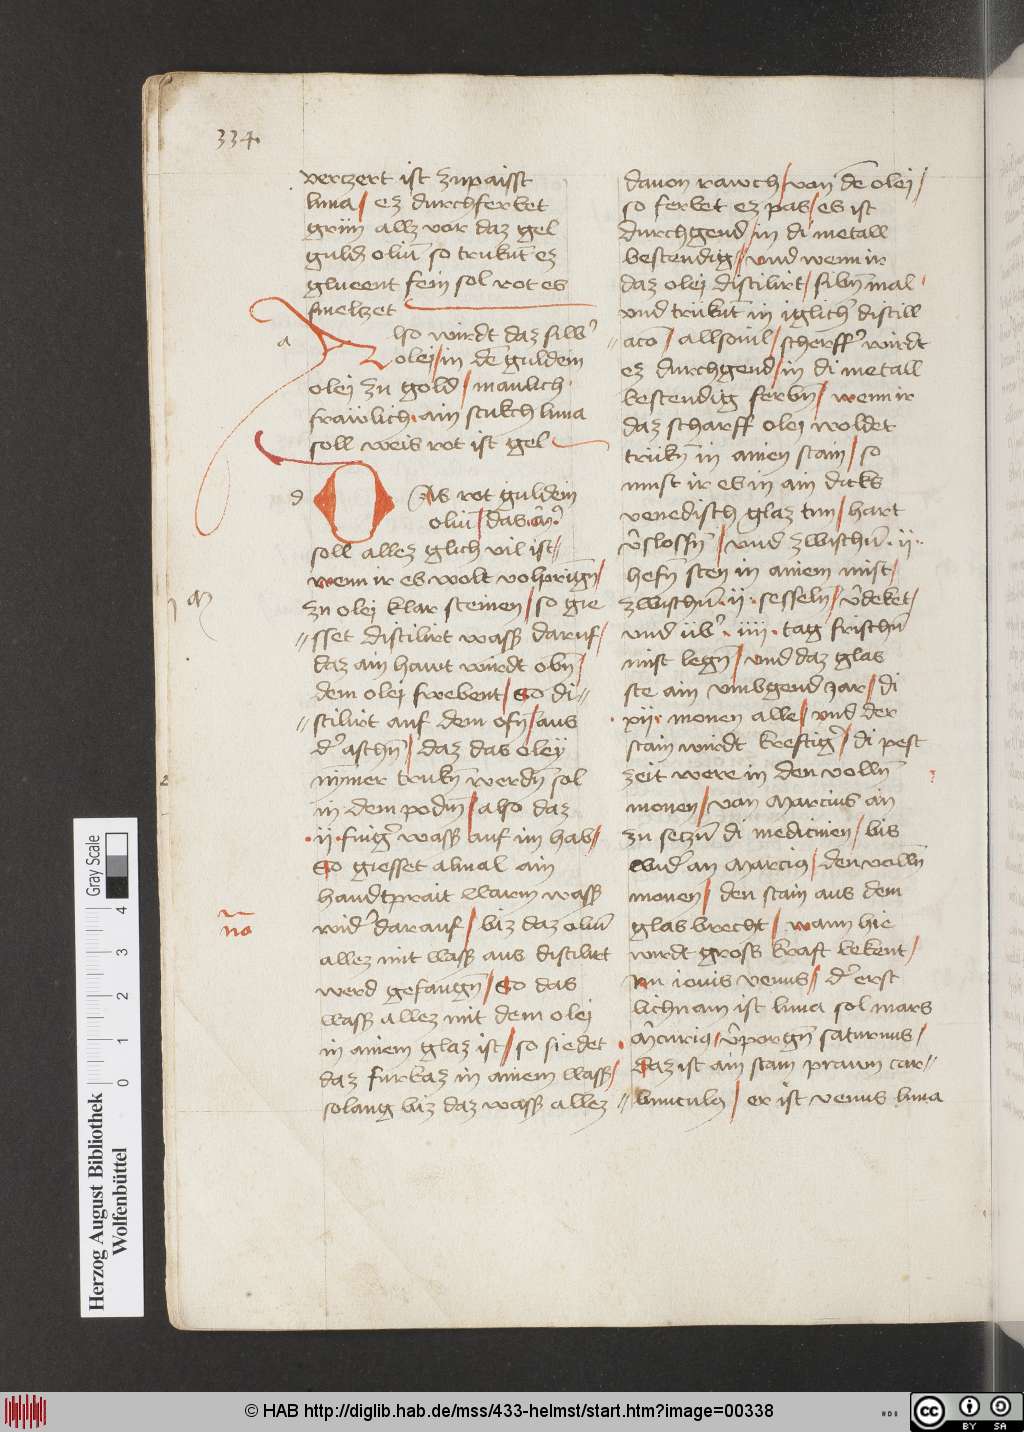 334.
verczert ist zupaisst
luna / ez durchferbet
grün allz vor daz gel
guldı oliū so truknt ez
glueent fein sol rot es
smelczet
a
Also wirdt daz silbˀ
olei / in dē guldein
olei zu gold / manlich
frawlich · ain stukch luna
soll weis rot ist gel
d
DAs rot guldein
oliū / das
soll allez glich vil ist //
wenn ir es wolt volpringn̄ /
zu olei klar steinen / so gie
// sset distilirt wassß daruf /
daz ain hawt wirdt obn̄ /
dem olei swebent / So di //
// stilirt auf dem ofn̄ / aus
dˀ aschn̄ / daz das oleÿ
nim̄er trukn̄ werdn̄ sol
in dem podn̄ / also daz
· ii · fingˀ wassß auf im hab /
So giesset almal ain
handtprait warm wassß
no
widˀ darauf / biz daz oliū
allez mit wassß aus distilirt
werd gefangn̄ / So das
wassß allez mit dem olei
in ainem glaz ist / so siedet
daz furbaz in ainem wassß /
solang biz daz wassß allez
dauon rawch / von dē olei /
so ferbet ez pas / es ist
durchgend / in di metall
bestendig // vnd wenn ir
daz olei distilirt / sibn̄ mal
vnd trükn̄t in iglichˀ distill
// acō / allsouil / scherffˀ wirdt
ez durchgend / in di metall
bestendig ferbn̄ / wenn ir
daz scharff olei woldet
trükn̄ in ainen stain / so
must ir es in ain dicks
venedisch glaz tun / hart
v̄slossn̄ / vnd zwischn̄ · ii ·
hefn̄ sten in ainem mist /
zwischn̄ · ii · sesseln / v̄deket /
vnd übˀ · iiii · tag frischn̄
mist legn̄ / vnd daz glas
ste ain vmbgend jar / di
· xii · monen alle / vnd der
stain wirdt kreftigˀ / di pest
zeit were in den volln̄
monen / van Marcius an
zu seczn̄ di medicinen / bis
widˀ an Marciꝰ / den volln̄
monen / den stain aus dem
glas brecht / wann hie
wirdt grossß kraft bekent /
Im iouis venus / dˀ erst
lichnam ist luna sol mars
· M̄curiꝰ / v̄porgn̄ saturnus /
Daz ist ain stain prawn car //
// bunculꝰ / er ist venus luna
Gray Scale
0 1 2 3 4
Herzog August Bibliothek
Wolfenbüttel
© HAB http://diglib.hab.de/mss/433-helmst/start.htm?image=00338
cc BY SA